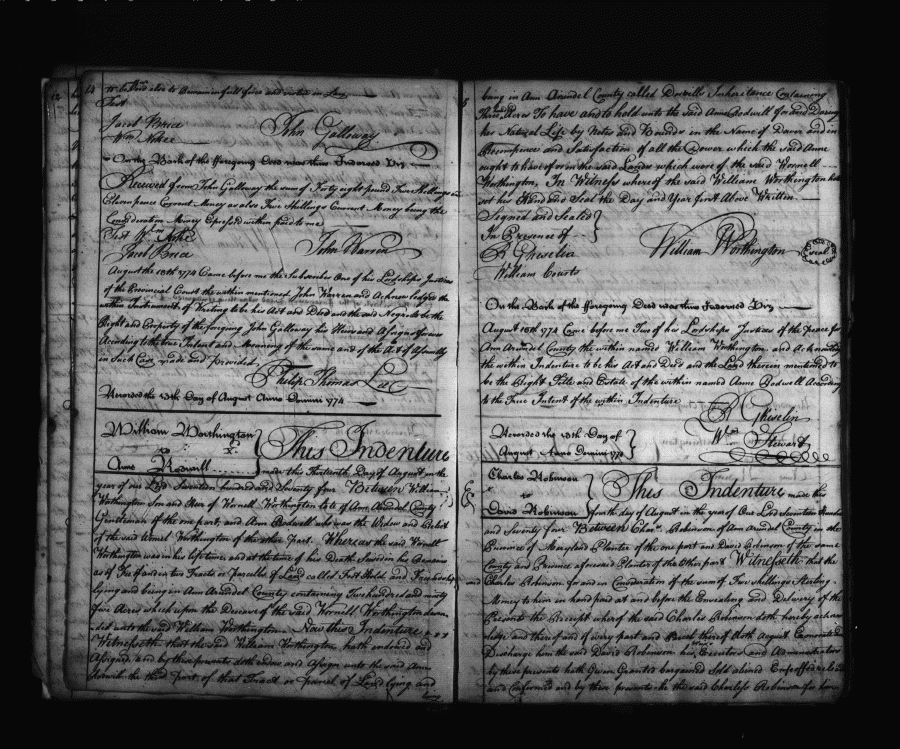 14
to be and also to Remain in full force and virtue in Law
Test
Jacob Brice
Wm. Nokee
John Galloway
On the Back of the foregoing Deed was thus Indorsed Viz.
Received from John Galloway the sum of Forty eight pound Five Shillings
Current Money as also Five Shillings Current Money being the
Consideration Money Expressed within paid to me
Test Wm. Nokee
Jacob Brice
John Warren
August the 13th 1774 Came before me the Subscriber One of his Lordships Justices
of the Provincial Court the within mentioned John Warren and Acknowledged the
within Instrument of Writing to be his Act and Deed and the said Negro to be the
Right and Property of the foregoing John Galloway his Heirs and Assigns forever
According to the true Intent and Meaning of the same and of the Act of Assembly
in such Case made and provided
Philip Thomas Lee
Recorded the 13th Day of August Anno Domini 1774
William Worthington
to
Anne Rowell
This Indenture
made this Thirteenth Day of August in the
year of our Lord Seventeen hundred and Seventy four Between William
Worthington Son and Heir of Vornell Worthington late of Ann Arundel County
Gentleman of the one part, and Ann Bodwell who was the Widow and Relict
of the said Vornel Worthington of the other Part. Whereas the said Vornell
Worthington was in his life time and at the time of his Death Seized in his Demesne
as of Fee of and in two Tracts or Parcells of Land called First Hold and Friendship
lying and being in Ann Arundel County containing Two hundred and ninty
five Acres which upon the Decease of the said Vornell Worthington decen
-ded unto the said William Worthington. Now this Indenture
Witnesseth that the said William Worthington hath endowed and
Assigned and by these presents doth endow and Assign unto the said Ann
the third Part of that Tract or parcel of Land lying and
being
being in Ann Arundel County called Dorvills Inheritance Containing
Acres To have and to hold unto the said Anne Bodwell for and During
her Natural Life by Metes and Bounds in the Name of Dower and in
Recompence and Satisfaction of all the Dower which the said Anne
ought to have of in or the said Lands which were of the said Vornell
Worthington, In Witness whereof the said William Worthington hath
set his Hand and Seal the Day and Year first Above Written
Signed and Sealed
In Presence of
R Ghiselin
William Courts
William Worthington
Seal
On the Back of the foregoing Deed was thus Indorsed Viz.
August 13th 1774 Came before me Two of his Lordships Justices of the peace for
Ann Arundel County the within named William Worthington and Acknowledged
the within Indenture to be his Act and Deed and the Land therein mentioned to
be the Right Title and Estate of the within named Anne Bodwell According
to the True Intent of the within Indenture
R Ghiselin
Wm. Stewart
Recorded the 13th Day of
August Anno Domini 1774
Charles Robinson
to
David Robinson
This Indenture made this
forth day of August in the year of One Lord Seventeen Hundred
and Seventy four Between Chas. Robinson of Ann Arundel County in the
Province of Maryland Planter of the one part and David Robinson of the same
County and Province aforesaid Planter of the Other part Witnesseth that the
said Charles Robinson for and in Consideration of the sum of Five shillings Sterling
Money to him in hand paid at and before the Ensealing and Delivery of these
Presents the Receipt whereof the said Charles Robinson doth hereby acknow
ledge and thereof and of every part and Parcel thereof doth Acquit Exonerate &
Discharge him the said David Robinson his Executors and Administrators
by these presents hath Given Granted bargained Sold aliened Enfeoffed
and Confirmed and by these presents the said Charless Robinson for him